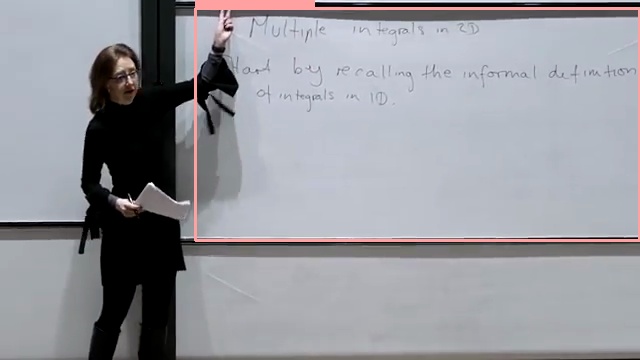 Multiple integrals in 2D
Start by recalling the informal definition
of integrals in 1D.